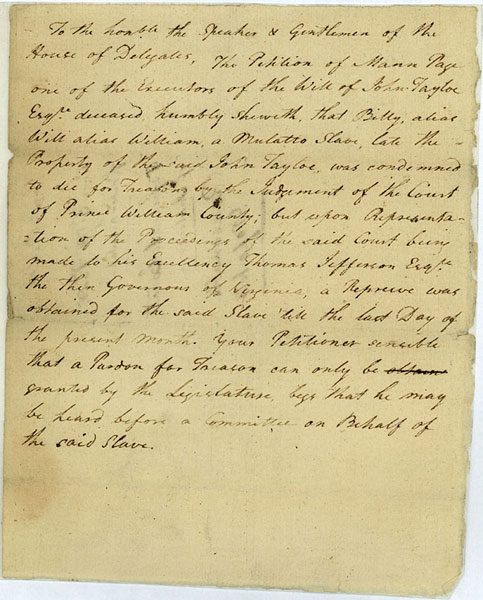 To the honble the Speaker & Gentlemen of the
House of Delegates, The Petition of Mann Page
one of the Executors of the Will of John Tayloe
Esqr. deceased humbly sheweth, that Billy, alias
Will alias William, a Mulatto Slave, late the
Property of the said John Tayloe, was condemned
to die for Treason by the Judgment of the Court
of Prince William County; but upon Representa-
-tion of the Proceedings of the said Court being
made to his Excellency Thomas Jefferson Esqr.
the then Governour of Virginia, a Reprieve was
obtained for the said Slave 'till the last Day of
the present month. Your Petitioner sensible
that a Pardon for Treason can only be obtain
granted by the Legislature, begs that he may
be heard before a Committee on Behalf of
the said Slave.